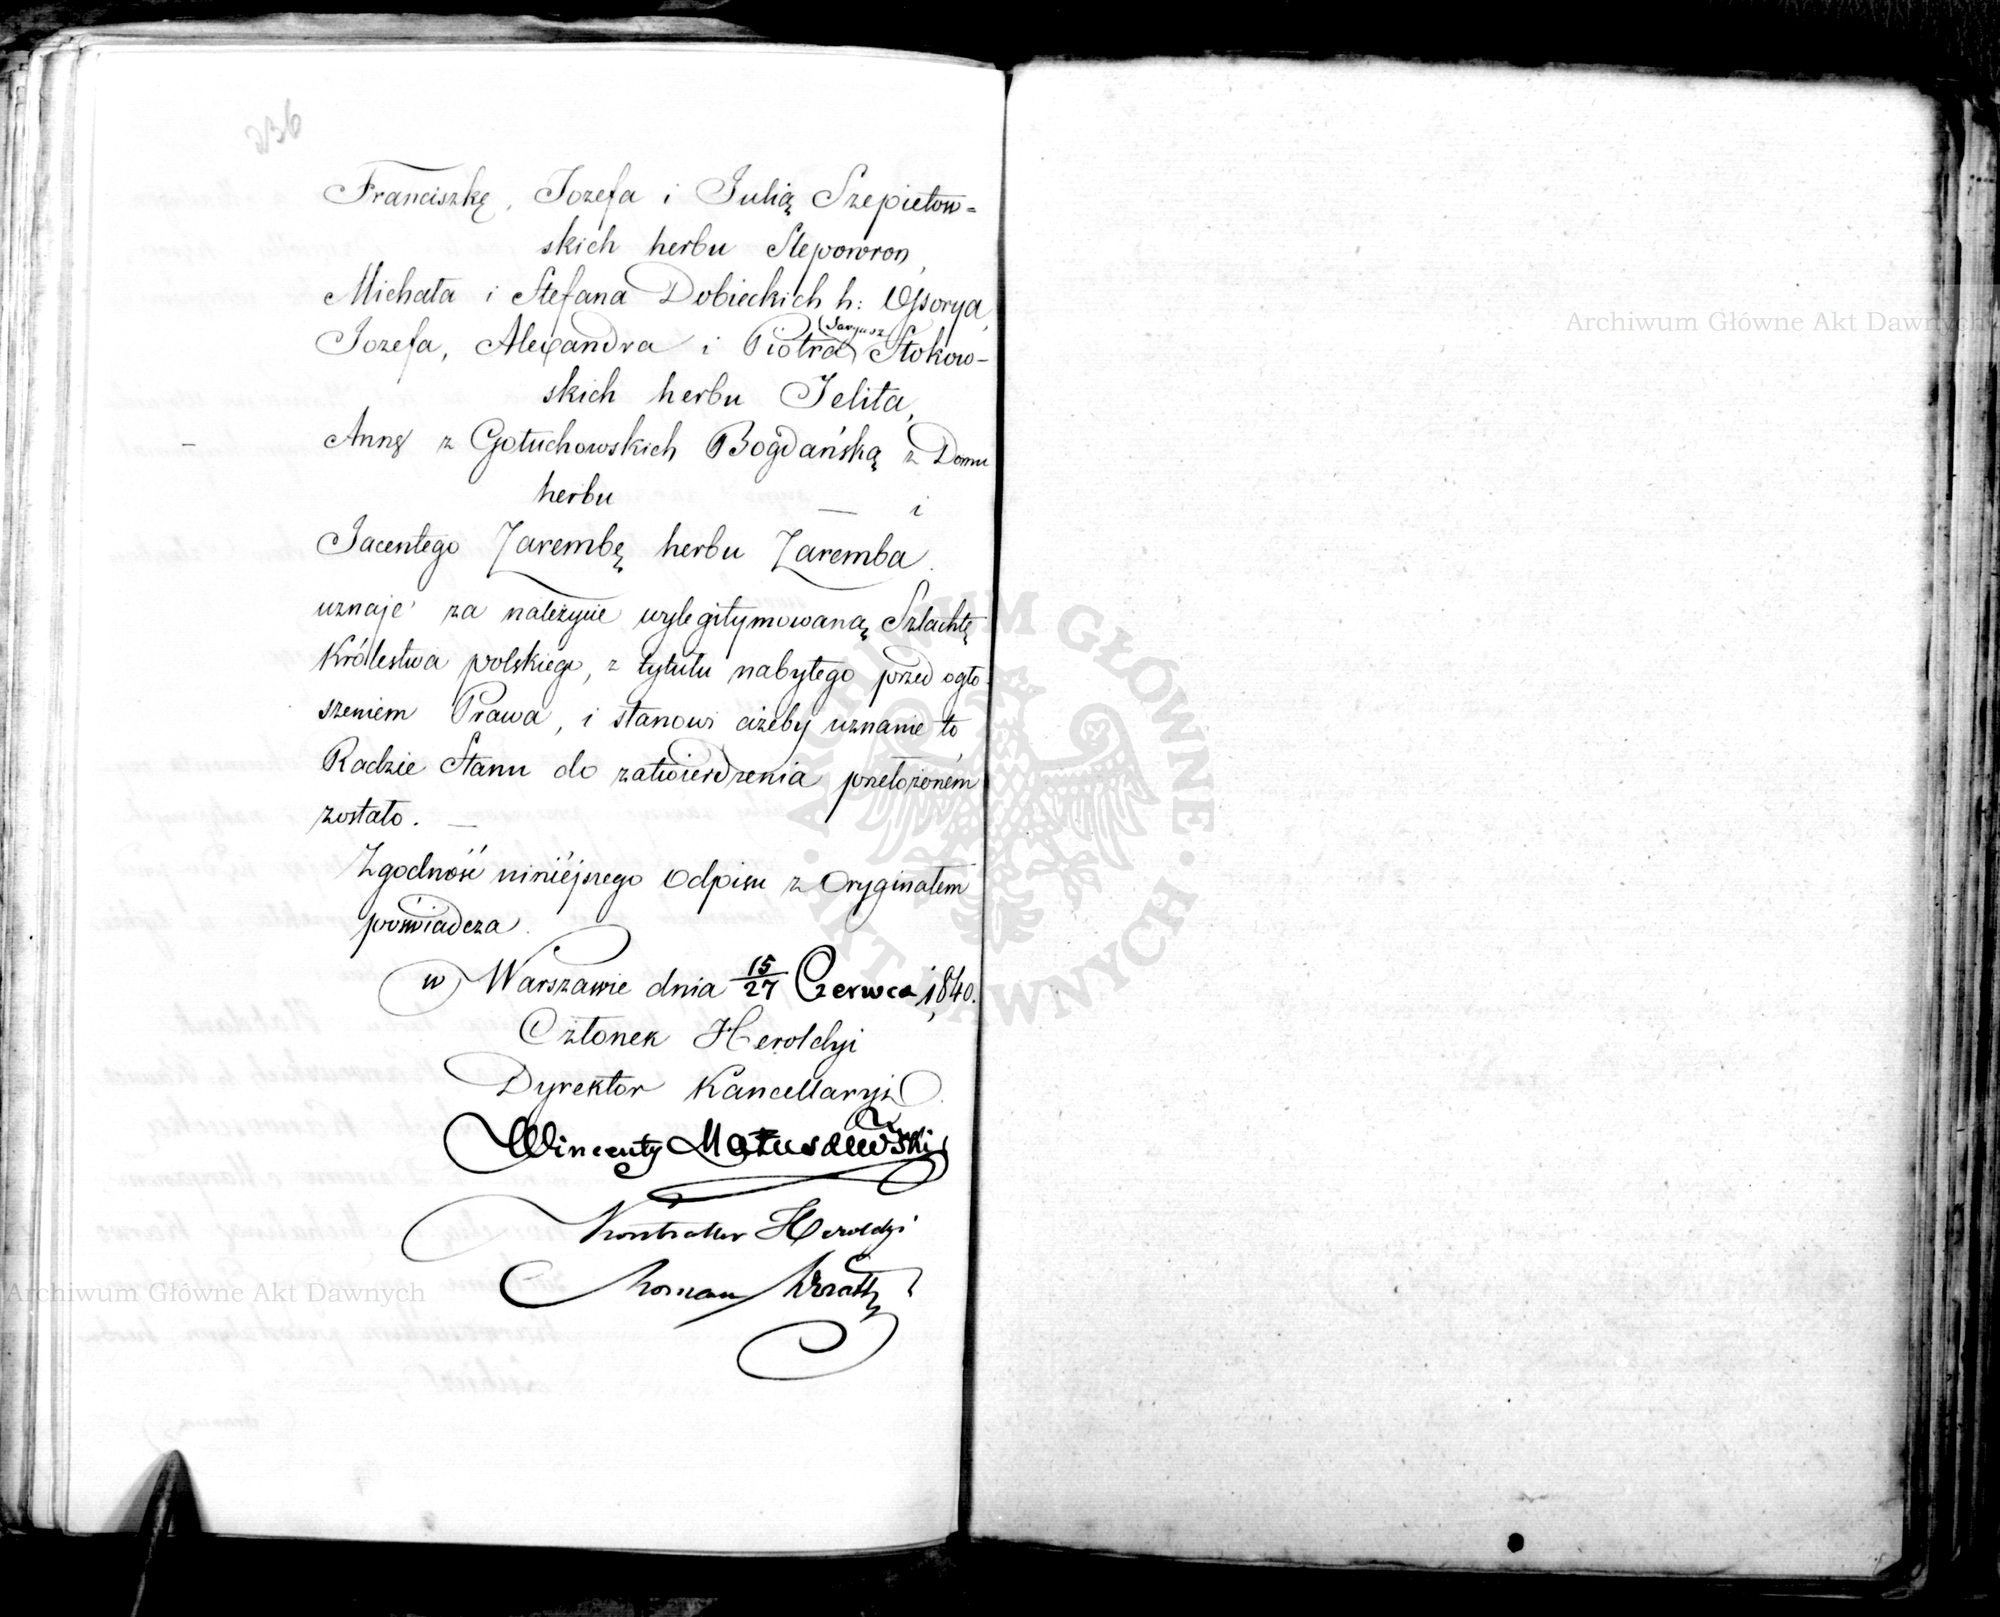 236
Franciszkę, Jozefa i Julią Szepietow=
skich herbu Slepowron,
Michała i Stefana Dobieckich h: Ossorya,
(Saryusz)
Jozefa, Alexandra i Piotra Stokow-
skich herbu Jelita,
Annę z Gołuchowskich Bogdańską z Domu
herbu — i
Jacentego Zarembę herbu Zaremba.
uznaje za należycie wylegitymowaną Szlachtę
Królestwa polskiego, z tytułu nabytego przed ogło-
szeniem Prawa, i stanowi ażeby uznanie to
Radzie Stanu do zatwierdzenia przełożoném
zostało. —
Zgodność niniéjszego Odpisu z Oryginałem
poświadcza.
w Warszawie dnia 15/27 Czerwca 1840.
Członek Heroldyi
Dyrektor Kancellaryi
Wincenty Matuszewski
Kontroller Heroldyi
Roman
Archiwum Główne Akt Dawnych
Archiwum Główne Akt Dawnych
ARCHIWUM GŁÓWNE · AKT DAWNYCH ·